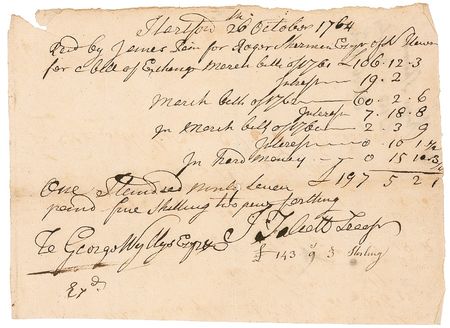 Hartford 26th October 1764
Recd by James for Roger Sherman Esqr of N Haven
for a bill of Exchange March bills of 1761 £106.12.3
Interest 19.2
March bills of 1762 60.2.6
Interest 7.18.8
In March bills of 1.2.3.9
Interest 0.10.1½
In hard money 0 15 10
One Hundred ninty Seven £197 5 2
pound five Shilling two penc farthing
To George Wyllys Esqr J Talcott Treasr
£ 143 9 3 Sterling
Exd